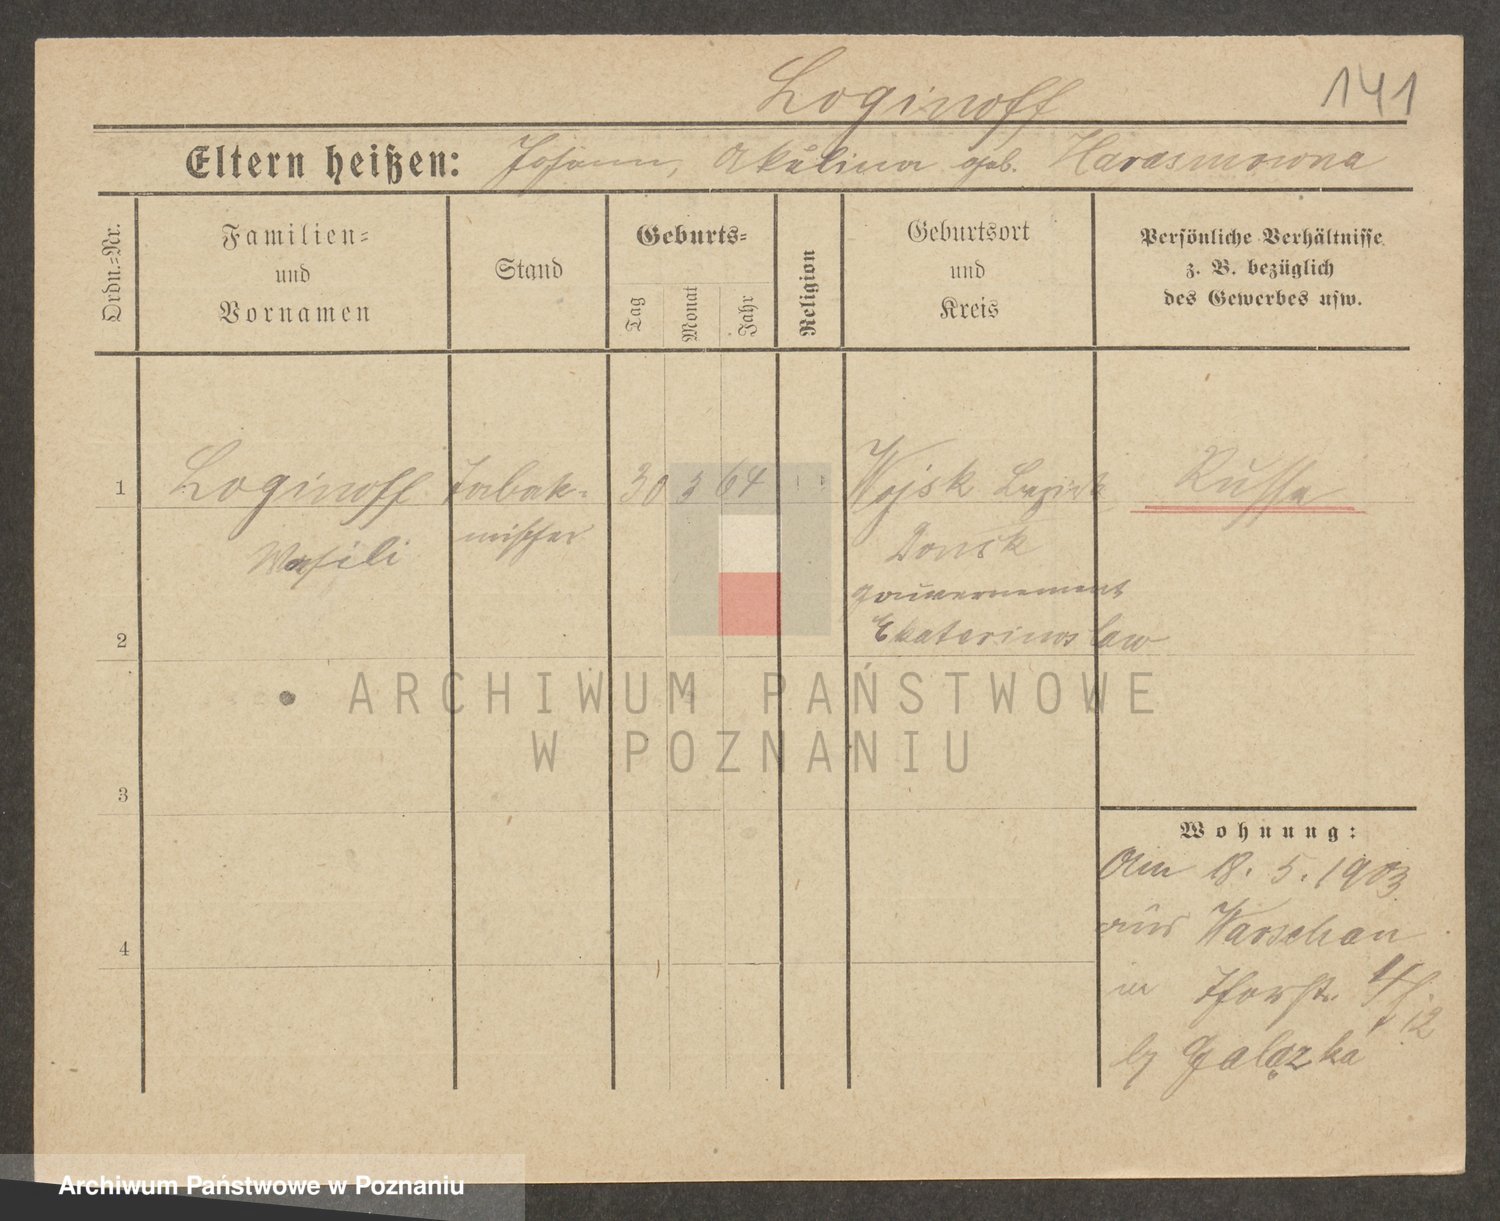 Loginoff
141
Eltern heißen: Johann, Akulina geb. Harasmowna
Ordn.=Nr.
Familien=
und
Vornamen
Stand
Geburts=
Tag
Monat
Jahr
Religion
Geburtsort
und
Kreis
Persönliche Verhältnisse
z. B. bezüglich
des Gewerbes usw.
1
Loginoff
Wasili
Tabak=
mischer
30 3 64
"
Wojsk Bezirk
Donsk
gouvernement
Ekaterinoslaw
Russe
2
3
4
Wohnung:
Am 18. 5. 1903
aus Warschau
in Thorstr.
12
by Gałązka
ARCHIWUM PAŃSTWOWE
W POZNANIU
Archiwum Państwowe w Poznaniu